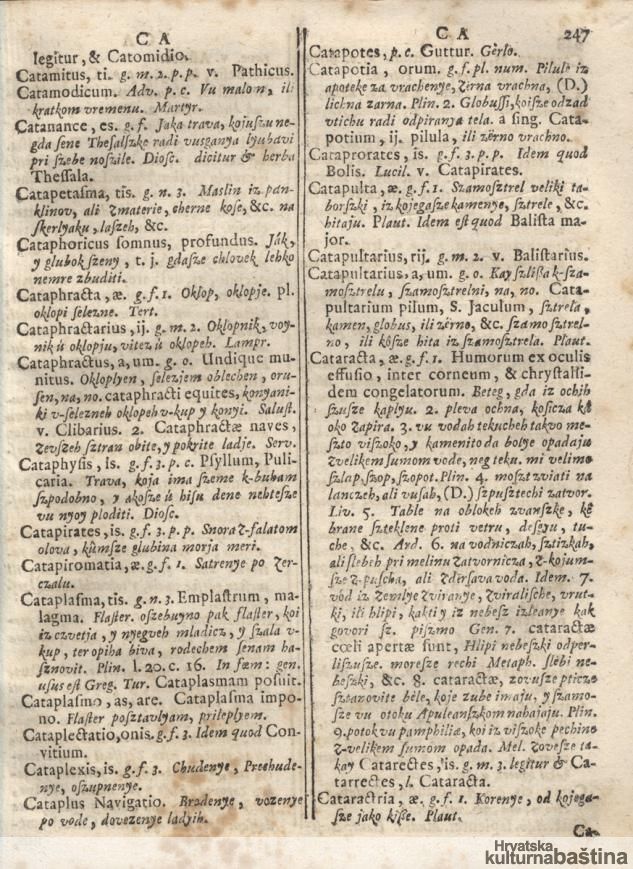 C A
legitur, & Catomidio.
Catamitus, ti. g. m. 2. p. p. v. Pathicus.
Catamodicum. Adv. p. c. Vu malo n, ili
kratkom vremenu. Martyr.
Catanance, es. g. f. Jaka trava, kojuszu ne-
gda sene Thesalszke radi vusganya lyubavi
pri szebe noszile. Diosc. dicitur & herba
Thessala.
Catapetasma, tis. g. n. 3. Maslin iz pan-
klinov, ali Zmaterie, cherne kose, &c. na
skerlyaku, laszeh, &c.
Cataphoricus somnus, profundus. Ják,
y glubok szeny, t. j. gdasze chlovek lehko
nemre zbuditi.
Cataphracta, æ. g. f. 1. Oklop, oklopje. pl.
oklopi selezne. Tert.
Cataphractarius, ij. g. m. 2. Oklopnik, voy-
nik ú oklopju, vitez ú oklopeh. Lampr.
Cataphractus, a, um. g. o. Undique mu-
nitus. Okloplyen, selezjem oblechen, oru-
sen, na, no. cataphracti equites, konyani-
ki v-selezneh oklopeh v-kup y konyi. Salust.
v. Clibarius. 2. Cataphractæ naves,
Zevszeh sztran obite, y pokrite ladje. Serv.
Cataphysis, is. g. f. 3. p. c. Psyllum, Puli-
caria. Trava, koja ima szeme k-buham
szpodobno, y akosze ú hisu dene nehtesze
vu nyoy ploditi. Diosc.
Catapirates, is. g. f. 3. p. p. Snora Z-falatom
olova, kúmsze glubina morja meri.
Catapiromatia, æ. g. f. 1. Satrenye po Zer-
czalu.
Cataplasma, tis. g. n. 3. Emplastrum, ma-
lagma. Flaster. oszebuyno pak flaster, koi
iz czvetja, y nyegveh mladicz, y szala v-
kup, ter opiha biva, rodechem senam ha-
sznovit. Plin. l. 20. c. 16. In fæm: gen.
usus est Greg. Tur. Cataplasmam posuit.
Cataplasmo, as, are. Cataplasma impo-
no. Flaster posztavlyam, prileplyem.
Cataplectatio, onis. g. f. 3. Idem quod Con-
vitium.
Cataplexis, is. g. f. 3. Chudenye, Prechude-
nye, oszupnenye.
Cataplus Navigatio. Brodenye, vozenye
po vode, dovezenye ladyih.
C A 247
Catapotes, p. c. Guttur. Gèrlo.
Catapotia, orum. g. f. pl. num. Pilule iz
apoteke za vrachenye, Zirna vrachna, (D.)
lichna zarna. Plin. 2. Globussi, koisze odzad
vtichu radi odpiranya tela. a sing. Cata-
potium, ij. pilula, ili zêrno vrachno.
Cataprorates, is. g. f. 3. p. p. Idem quod
Bolis. Lucil. v. Catapirates.
Catapulta, æ. g. f. 1. Szamosztrel veliki ta-
borszki, iz kojegasze kamenye, sztrele, &c.
hitaju. Plaut. Idem est quod Balista ma-
jor.
Catapultarius, rij. g. m. 2. v. Balistarius.
Catapultarius, a, um. g. o. Kay szlissa k-sza-
mosztrelu, szamosztrelni, na, no. Cata-
pultarium pilum, S. Jaculum, sztrela,
kamen, globus, ili zêrno, &c. szamosztrel-
no, ili kôsze hita iz szamosztrela. Plaut.
Cataracta, æ. g. f. 1. Humorum ex oculis
effusio, inter corneum, & chrystalli-
dem congelatorum. Beteg, gda iz ochih
szusze kaplyu. 2. pleva ochna, kosicza kâ
oko zapira. 3. vu vodah tekucheh takvo me-
szto viszoko, y kamenito da bolye opadaju
Zvelikem sumom vode, neg teku. mi velimo
szlap, szop, szopot. Plin. 4. moszt zviati na
lanczeh, ali vusah, (D.) szpusztechi zatvor.
Liv. 5. Table na oblokeh zvanszke, kê
brane szteklene proti vetru, desyu, tu-
che, &c. Ard. 6. na vodniczah, sztizkah,
ali slebeh pri melinu Zatvornicza, Z-kojum-
sze Z-puscha, ali Zdersava voda. Idem. 7.
vod iz zemlye Zviranye, Zviralische, vrut-
ki, ili hlipi, kakti y iz nebesz izleanye kak
govori sz. piszmo Gen. 7. cataractæ
cœli apertæ sunt, Hlipi nebeszki odper-
liszusze. moresze rechi Metaph. slêbi ne-
beszki, &c. 8. cataractæ, zovusze pticze
sztanovite bêle, koje zube imaju, y szamo-
sze vu otoku Apuleanszkom nahajaju. Plin.
9. potok vu pamphiliæ, koi iz viszoke pechine
Z-velikem sumom opada. Mel. Zovesze ta-
kay Catarectes, is. g. m. 3. legitur & Ca-
tarrectes, l. Cataracta.
Cataractria, æ. g. f. 1. Korenye, od kojega-
sze jako kisse. Plaut.
Ca-
Hrvatska
kulturnabaština